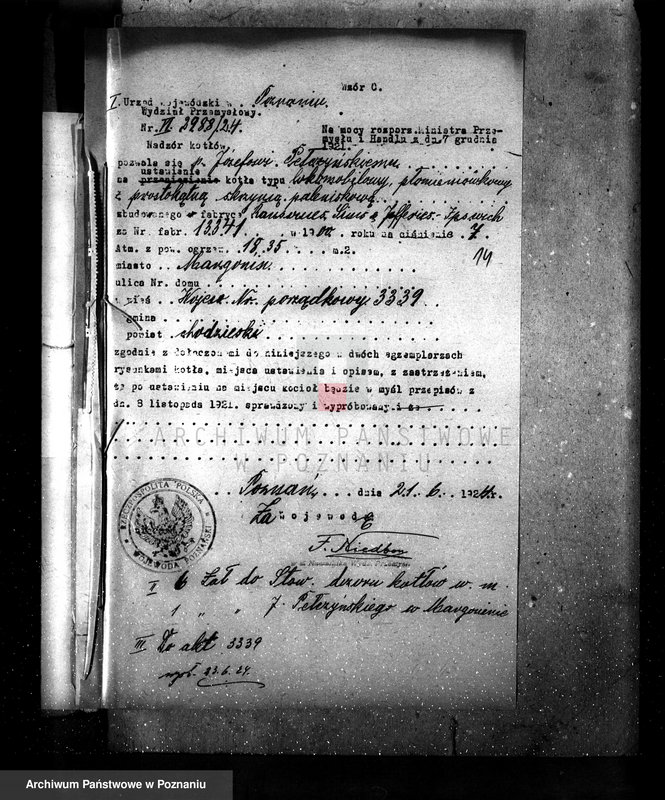 Wzór C.
I. Urząd Wojewódzki w .. Poznaniu.
Wydział Przemysłowy.
Nr. VI 3988/24.
Nadzór kotłów.
Na mocy rozporz. Ministra Prze-
mysłu i Handlu z dn. 7 grudnia
1921.
pozwala się p. Józefowi Pełczyńskiemu
ustawienie
na kotła typu lokomobilowy, płomieniówkowy
z prostokątną skrzynią paleniskową
zbudowanego w fabryce Ransomes Sims & Jefferies. Ipswich
za Nr. fabr. 13341 w 1900 roku na ciśnienie 7
Atm. z pow. ogrzew. 18,35 m.2.
14
miasto .. Margonin
ulica Nr. domu
Wojew. Nr. porządkowy 3339
gmina
powiat chodzieski
zgodnie z dołączonemi do niniejszego w dwóch egzemplarzach
rysunkami kotła, miejsca ustawienia i opisem, z zastrzeżeniem,
że po ustawieniu na miejscu kocioł będzie w myśl przepisów z
dn. 8 listopada 1921. sprawdzony i wypróbowany
ARCHIWUM PAŃSTWOWE
W POZNANIU
Poznań, dnia 21. 6. 1924r.
Za Wojewodę
RZECZPOSPOLITA POLSKA
WOJEWODA POZNAŃSKI
F. Niedbor
Naczelnika Wydz. Przemysł.
II 6 Zał do Stow. dozoru kotłów w. m.
1 " " J. Pełczyńskiego w Margoninie
III Do akt 3339
wysł. 23.6.24.
Archiwum Państwowe w Poznaniu